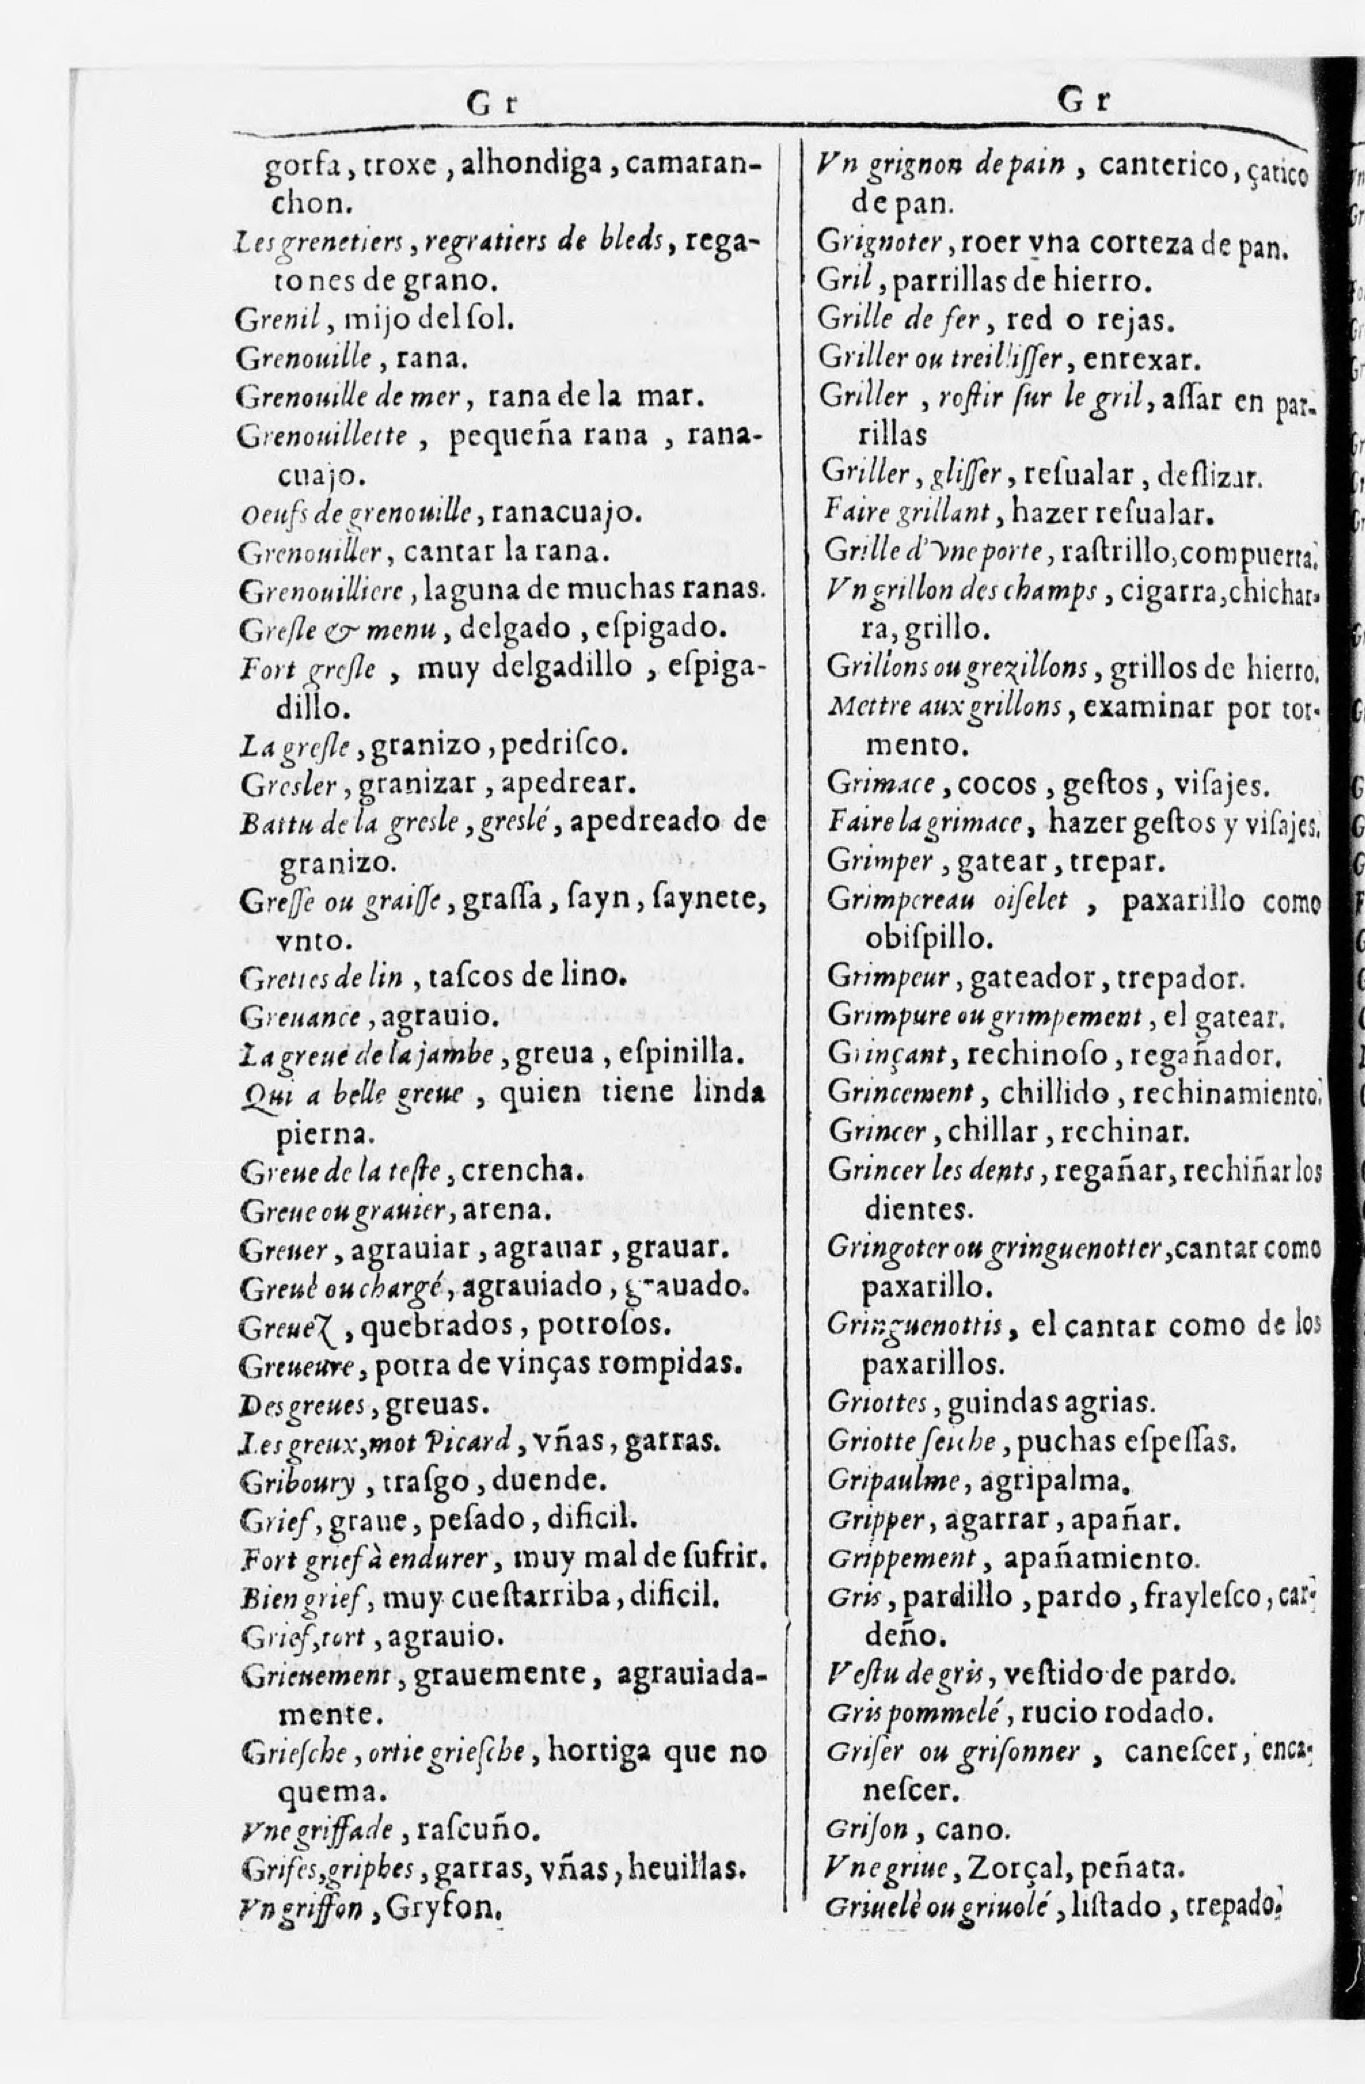 G r
gorfa, troxe, alhondiga, camaran-
chon.
Les grenetiers, regratiers de bleds, rega-
tones de grano.
Grenil, mijo del ſol.
Grenouille, rana.
Grenouille de mer, rana de la mar.
Grenouillette, pequeña rana, rana-
cuajo.
Oeufs de grenouille, ranacuajo.
Grenouiller, cantar la rana.
Grenouilliere, laguna de muchas ranas.
Greſle & menu, delgado, eſpigado.
Fort greſle, muy delgadillo, eſpiga-
dillo.
La greſle, granizo, pedriſco.
Gresler, granizar, apedrear.
Battu de la gresle, greslé, apedreado de
granizo.
Greſſe ou graiſſe, graſſa, ſayn, ſaynete,
vnto.
Grettes de lin, taſcos de lino.
Greuance, agrauio.
La greue de la jambe, greua, eſpinilla.
Qui a belle greue, quien tiene linda
pierna.
Greue de la teſte, crencha.
Greue ou grauier, arena.
Greuer, agrauiar, agrauar, grauar.
Greué ou chargé, agrauiado, grauado.
Greuez, quebrados, potroſos.
Greueure, potra de vinças rompidas.
Des greues, greuas.
Les greux, mot Picard, vñas, garras.
Griboury, traſgo, duende.
Grief, graue, peſado, dificil.
Fort grief à endurer, muy mal de ſufrir.
Bien grief, muy cueſtarriba, dificil.
Grief, tort, agrauio.
Grieuement, grauemente, agrauiada-
mente.
Grieſche, ortie grieſche, hortiga que no
quema.
Vne griffade, raſcuño.
Grifes, griphes, garras, vñas, heuillas.
Vn griffon, Gryfon.
G r
Vn grignon de pain, canterico, çatico
de pan.
Grignoter, roer vna corteza de pan.
Gril, parrillas de hierro.
Grille de fer, red o rejas.
Griller ou treilliſſer, enrexar.
Griller, roſtir ſur le gril, aſſar en par-
rillas
Griller, gliſſer, reſualar, deſlizar.
Faire grillant, hazer reſualar.
Grille d'vne porte, raſtrillo, compuerta.
Vn grillon des champs, cigarra, chichar-
ra, grillo.
Grillons ou grezillons, grillos de hierro.
Mettre aux grillons, examinar por tor-
mento.
Grimace, cocos, geſtos, viſajes.
Faire la grimace, hazer geſtos y viſajes.
Grimper, gatear, trepar.
Grimpereau oiſelet, paxarillo como
obiſpillo.
Grimpeur, gateador, trepador.
Grimpure ou grimpement, el gatear.
Grinçant, rechinoſo, regañador.
Grincement, chillido, rechinamiento.
Grincer, chillar, rechinar.
Grincer les dents, regañar, rechiñar los
dientes.
Gringoter ou gringuenotter, cantar como
paxarillo.
Gringuenottis, el cantar como de los
paxarillos.
Griottes, guindas agrias.
Griotte ſeiche, puchas eſpeſſas.
Gripaulme, agripalma.
Gripper, agarrar, apañar.
Grippement, apañamiento.
Gris, pardillo, pardo, frayleſco, car-
deño.
Veſtu de gris, veſtido de pardo.
Gris pommelé, rucio rodado.
Griſer ou griſonner, caneſcer, enca-
neſcer.
Griſon, cano.
Vne griue, Zorçal, peñata.
Griuelè ou griuolé, liſtado, trepado.